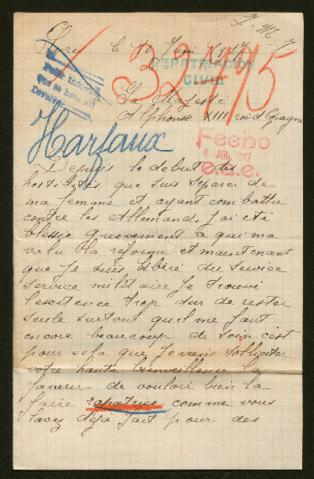 J. M. J.
le 10 Juin 1917
REPATRIACION
CIVIL
32475
Sa Majesté
Alphonse XIII roi d'Espagne
Harfaux
Fecho
JUL. 1917
Depuis le debut des
hostilités que suis separé de
ma femme et ayant combattu
contre les Allemands j'ai été
blessé gravement à qui ma
valu la reforme et maintenant
que je suis libéré du Service
Service militaire Je trouve
l'existence trop dur de rester
seule surtout qu'il me faut
encore beaucoup de soin c'est
pour sela que Je viens sollicite
votre haute bienveillance la
faveur de vouloir bien la
faire rapatrier comme vous
lavez déjà fait pour des